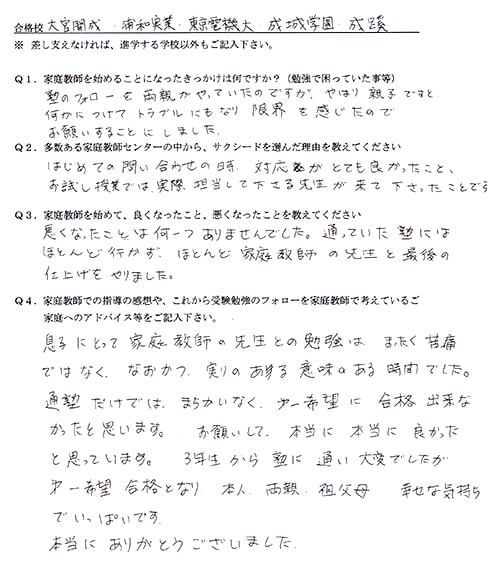 合格校 大宮開成・浦和実業・東京電機大・成城学園・成蹊
※ 差し支えなければ、進学する学校以外もご記入下さい。
Q1．家庭教師を始めることになったきっかけは何ですか？（勉強で困っていた事等）
塾のフォローを両親がやっていたのですが、やはり親子ですと、
何かにつけてトラブルにもなり限界を感じたので
お願いすることにしました。
Q2．多数ある家庭教師センターの中から、サクシードを選んだ理由を教えてください
はじめての問い合わせの時、対応がとても良かったこと、
お試し授業では、実際担当して下さる先生が来て下さったことで
Q3．家庭教師を始めて、良くなったこと、悪くなったことを教えてください
悪くなったことは何一つありませんでした。通っていた塾には
ほとんど行かず、ほとんど家庭教師の先生と最後の
仕上げをやりました。
Q4．家庭教師での指導の感想や、これから受験勉強のフォローを家庭教師で考えているご
家庭へのアドバイス等をご記入下さい。
息子にとって家庭教師の先生との勉強は、まったく苦痛
ではなく、なおかつ、実りのある意味のある時間でした。
通塾だけでは、まちがいなく、第一希望に合格出来な
かったと思います。お願いして、本当に本当に良かった
と思っています。3年生から塾に通い大変でしたが
第一希望合格となり、本人、両親、祖父母 幸せな気持ち
でいっぱいです。
本当にありがとうございました。